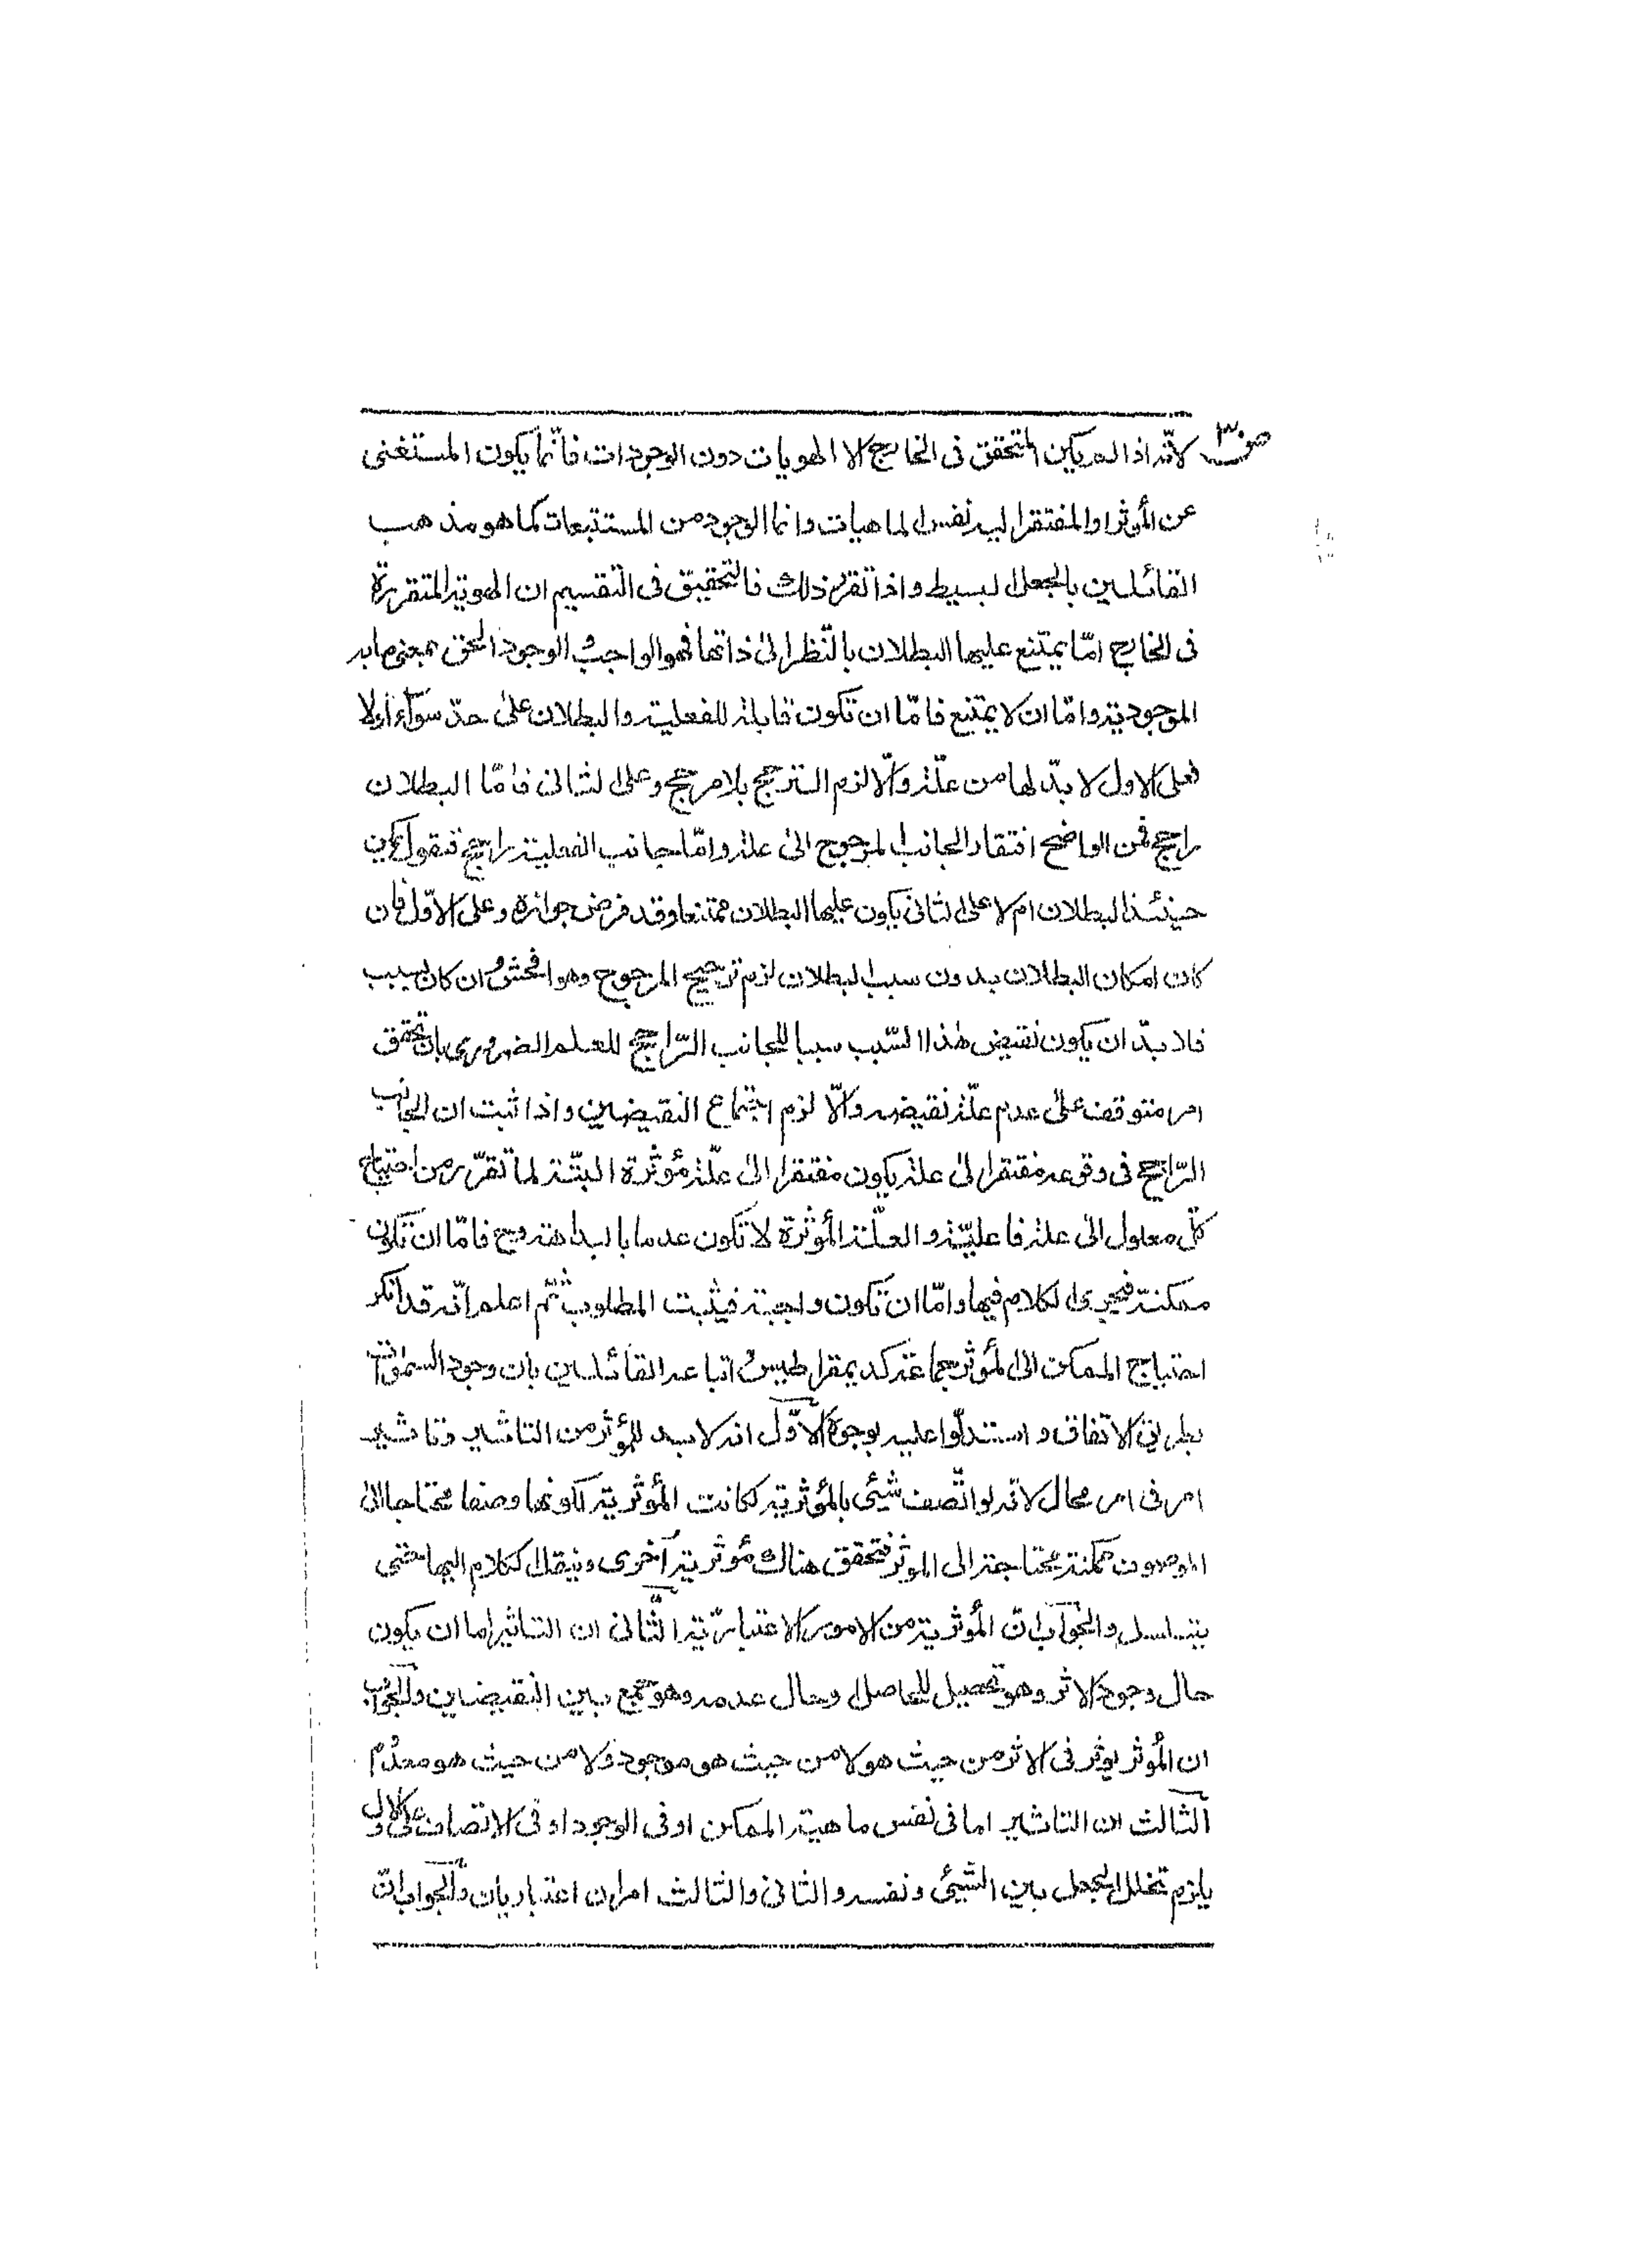 ص۳۰
لانّه اذا لم يكن المتحقق فى الخارج الا الهويات دون الوجودات فانّما يكون المستغنى
عن المؤثر او المفتقر اليه نفس الماهيات وانما الوجود من المستتبعات كما هو مذهب
القائلين بالجعل البسيط واذا تقرر ذلك فالتحقيق فى التقسيم ان الهوية المتقررة
فى الخارج امّا يمتنع عليها البطلان بالنّظر الىٰ ذاتها فهو الواجب و الوجود الحق بمعنى ما به
الموجودية وامّا ان لا يمتنع فامّا ان تكون قابلة للفعلية والبطلان علىٰ حدّ سوآء او لا
فعلى الاول لا بدّ لها من علّة والّا لزم الترجح بلا مرجح وعلى الثانى فامّا البطلان
راجح فمن الواضح افتقار الجانب المرجوح الىٰ علة وامّا جانب الفعلية راجح فنقول يمكن
حينئذ البطلان ام لا على الثانى يكون عليها البطلان ممتنعا وقد فرض جوازه وعلى الاوّل فان
كان امكان البطلان بدون سبب البطلان لزم ترجيح المرجوح وهو افحش وان كان بسبب
فلا بدّ ان يكون نقيض هٰذا السّبب سببا للجانب الرّاجح للعلم الضرورى بان تحقق
امر متوقف علىٰ عدم علّة نقيضه والّا لزم اجتماع النقيضين واذا ثبت ان الجانب
الرّاجح فى وقوعه مفتقر الىٰ علة يكون مفتقرا الىٰ علّة مؤثّرة البتّة لما تقرّر من احتياج
كلّ معلول الىٰ علة فاعليّة والعلّة المؤثرة لا تكون عدما بالبداهة وح فامّا ان تكون
ممكنة فيجرى الكلام فيها وامّا ان تكون واجبة فيثبت المطلوب ثمّ اعلم انّه قد انكر
احتياج الممكن الى المؤثر جماعة كديمقراطيس و اتباعه القائلين بان وجود السمٰوٰت
بطريق الاتّفاق و استدلّوا عليه بوجوه الاوّل انه لا بد للمؤثر من التاثير وتاثير
امر فى امر محال لانّه لو اتّصف شيئ بالمؤثرية لكانت المؤثرية لكونها وصفا محتاجا الى
الموصوف ممكنة محتاجة الى المؤثر فتحقق هناك مؤثرية اخرى وينقل الكلام اليها حتى
يتسلسل والجواب انّ المؤثرية من الامور الاعتباريّة الثّانى ان التاثير اما ان يكون
حال وجود الاثر وهو تحصيل للحاصل او حال عدمه وهو جمع بين النقيضين والجواب
ان المؤثر يؤثر فى الاثر من حيث هو لا من حيث هو موجود ولا من حيث هو معدوم
الثالث ان التاثير اما فى نفس ماهية الممكن او فى الوجود او فى الاتصاف على الاول
يلزم تخلل الجعل بين الشيئ ونفسه والثانى والثالث امران اعتباريان والجواب انّ